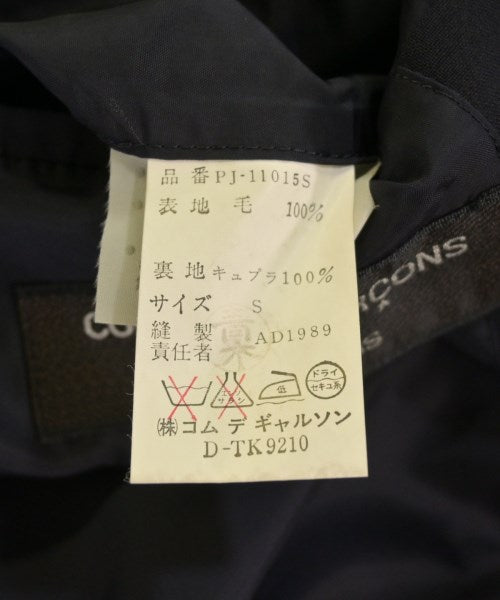 品番 PJ-11015S
表地 毛 100%
裏地 キュプラ 100%
サイズ S
縫製
責任者 AD1989
エンソ
サラシ
低
ドライ
セキユ系
㈱コム デ ギャルソン
D-TK9210
CO
RÇONS
S